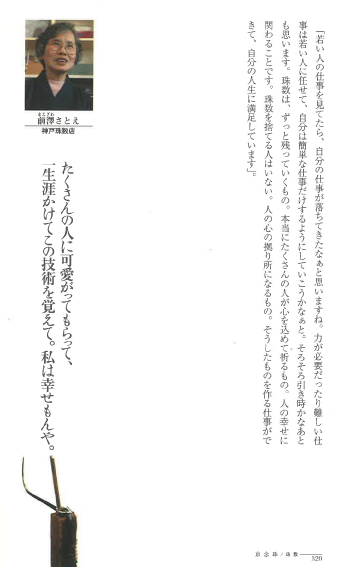 「若い人の仕事を見てたら、自分の仕事が落ちてきたなぁと思いますね。力が必要だったり難しい仕
事は若い人に任せて、自分は簡単な仕事だけするようにしていこうかなぁと。そろそろ引き時かなあと
も思います。珠数は、ずっと残っていくもの。本当にたくさんの人が心を込めて祈るもの。人の幸せに
関わることです。珠数を捨てる人はいない。人の心の拠り所になるもの。そうしたものを作る仕事がで
きて、自分の人生に満足しています」。
たくさんの人に可愛がってもらって、
一生涯かけてこの技術を覚えて。私は幸せもんや。
まえざわ
前澤さとえ
神戸珠数店
京念珠/珠数
320